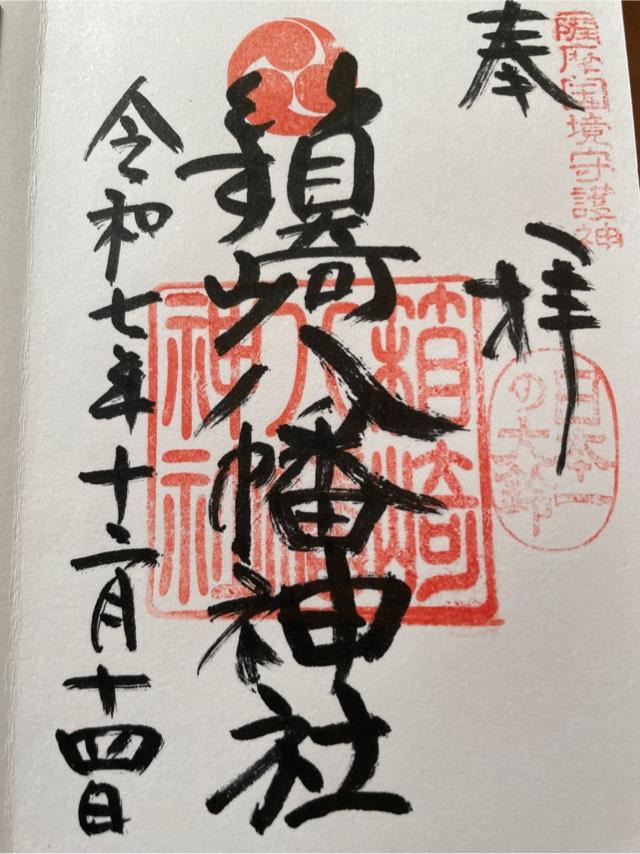 薩摩国境守護神
奉拝
日本一
の大鈴
箱崎八幡神社
箱崎
八幡
神社
令和七年十二月十四日